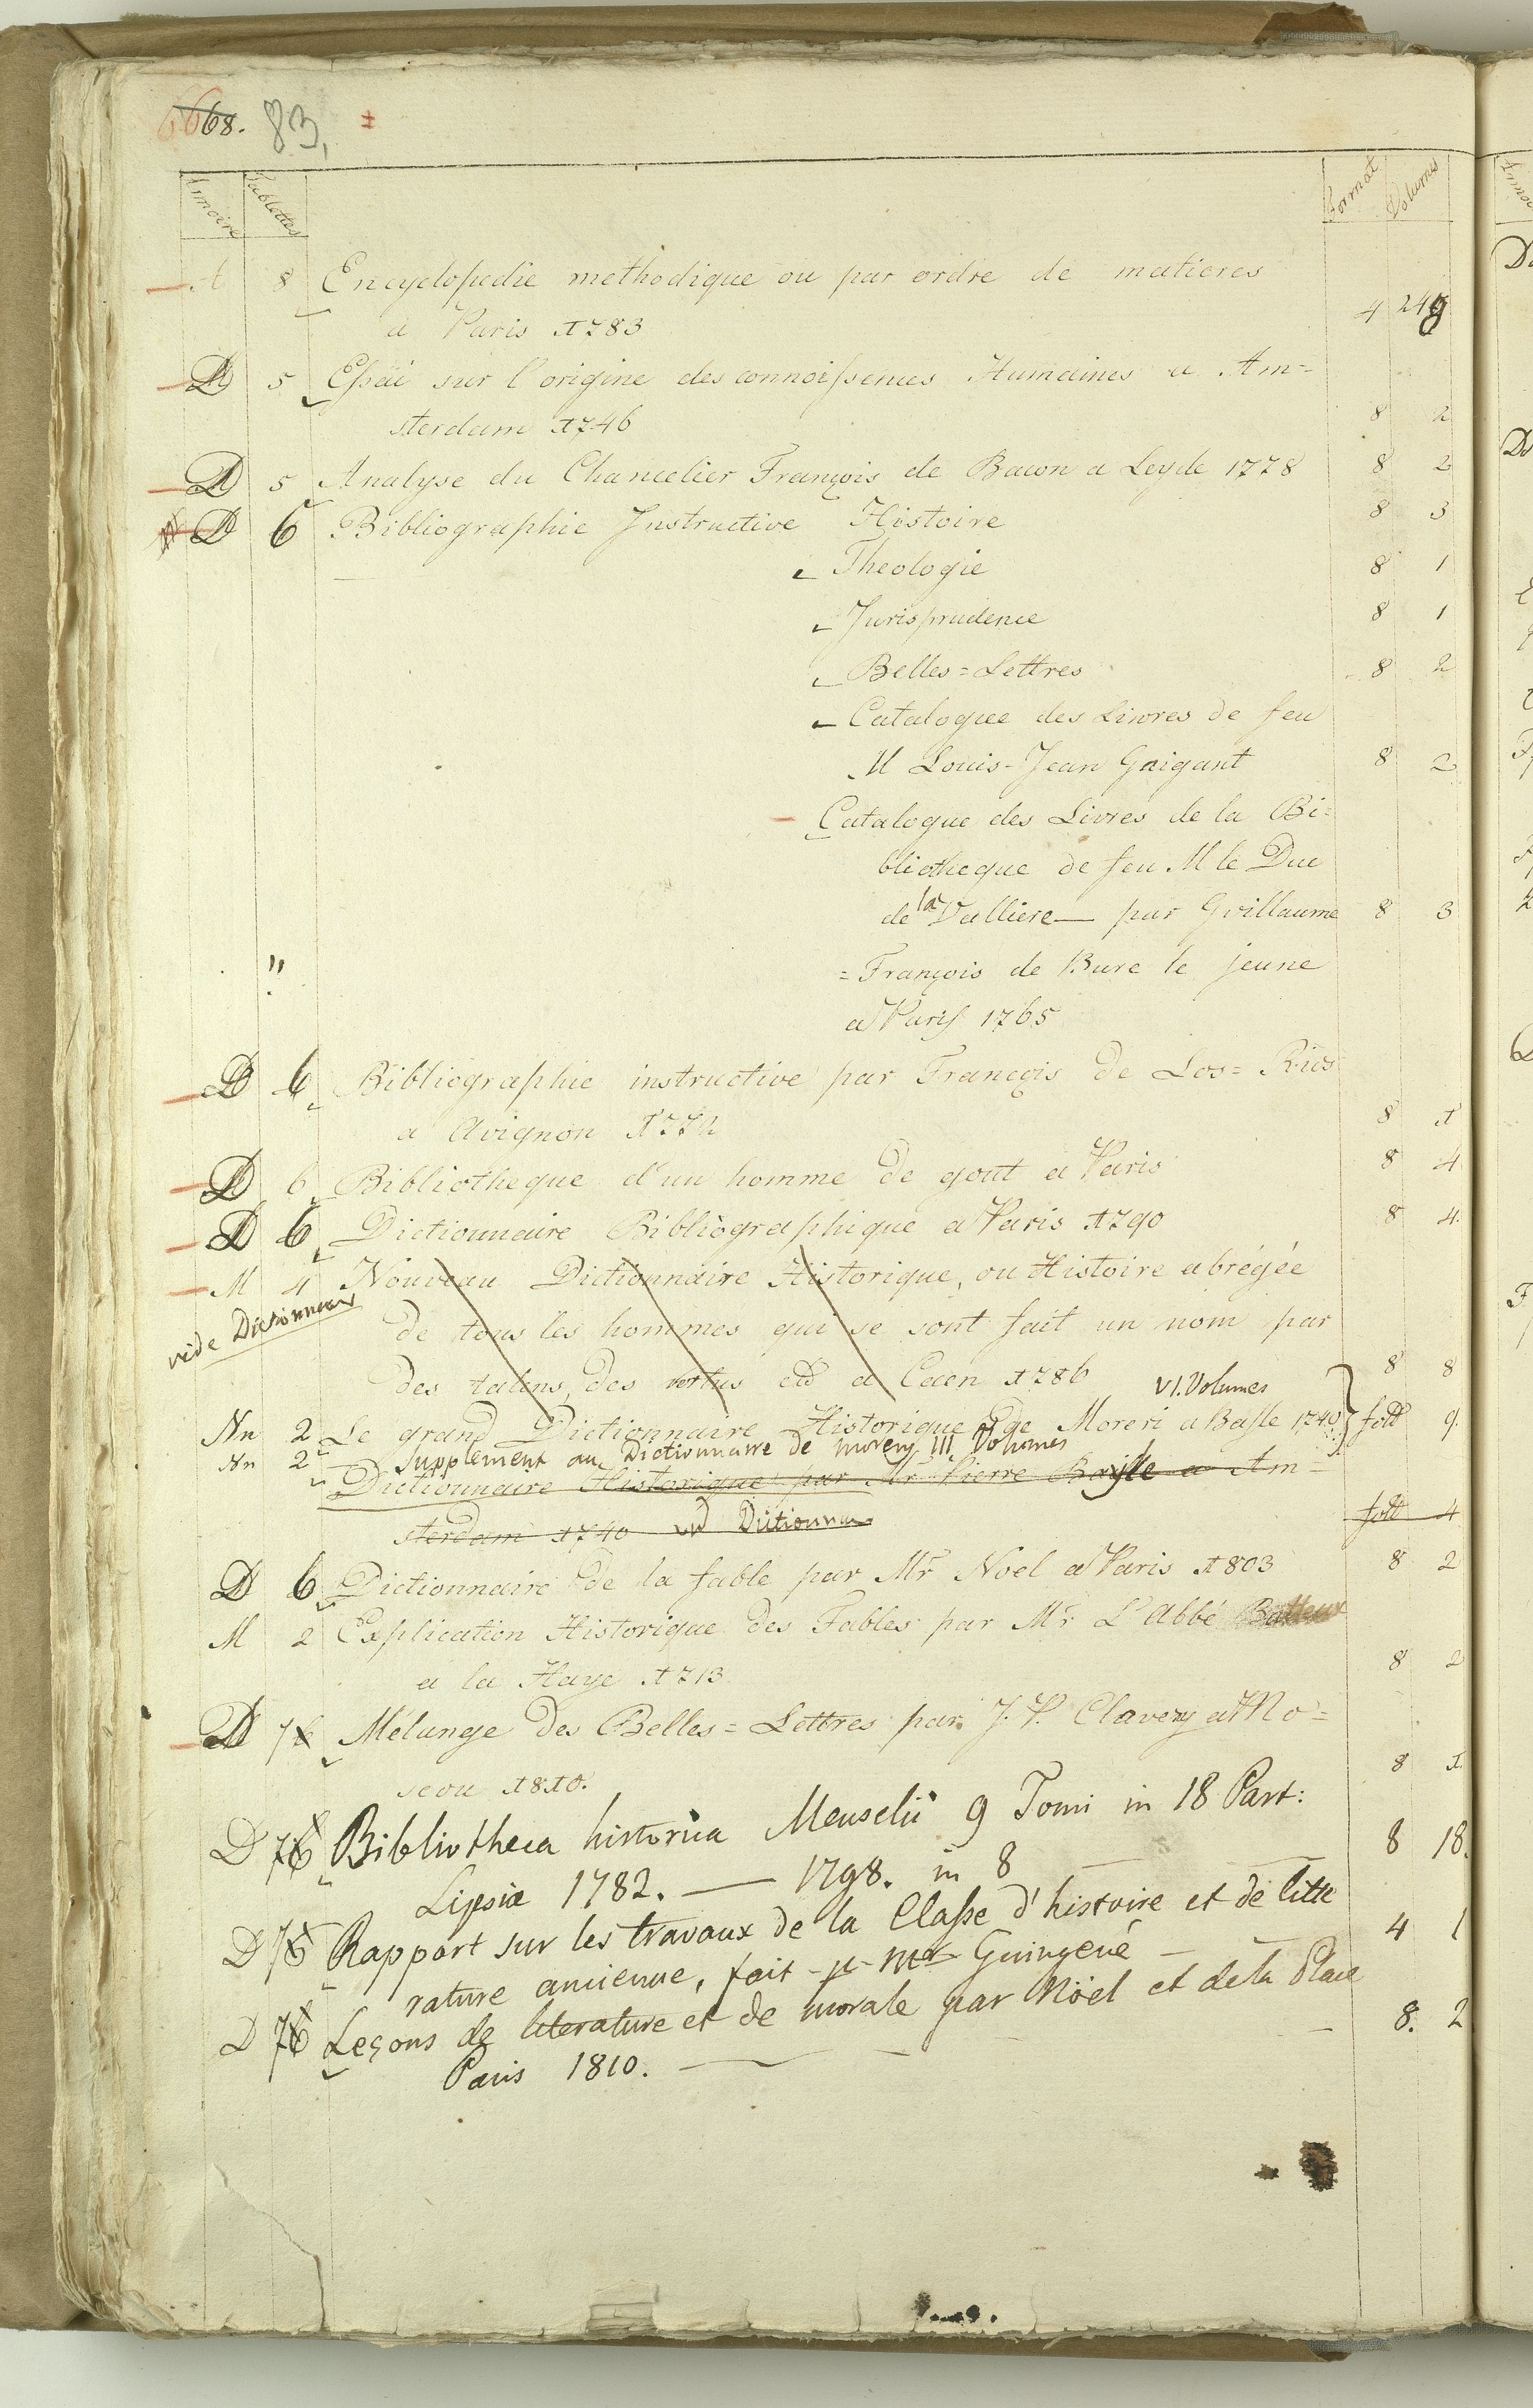 6668. 83,
Armoire Tablettes Format Volumes
A 8 Encyclopedie methodique ou par ordre de matieres
a Paris 1783 4 249
D 5 Essai sur l'origine des connoissences Humaines a Am=
sterdam 1746 8 2
D 5 Analyse du Chancelier François de Bacon a Leyde 1778 8 2
D 6 Bibliographie Instructive Histoire 8 3
Theologie 8 1
Jurisprudence 8 1
Belles=Lettres 8 2
Catalogue des Livres de feu
M Louis-Jean Gaignat 8 2
Catalogue des Livres de la Bi=
bliotheque de feu M le Duc
de la Valliere — par Guillaume 8 3
"
=François de Bure le jeune
a Paris 1765
D 6 Bibliographie instructive par François de Los=Rios
a Avignon 1772 8 1
D 6 Bibliotheque d'un homme de gout a Paris 8 4
D 6 Dictionnaire Bibliographique a Paris 1790 8 4.
M 4 Nouveau Dictionnaire Historique, ou Histoire abrégée
vide Dictionnair
de tous les hommes qui se sont fait un nom par
des talens, des vertus a Caen 1786 8 8
VI. Volumes
Nn 2 Le grand Dictionnaire Historique de Moreri a Basle 1740 foll 9.
Nn 2 Supplement au Dictionnaire de morery III Volumes
Dictionnaire Historique par Mr Pierre Bayle a Am=
sterdam 1740 vid Dictionnai foll 4
D 6 Dictionnaire de la fable par Mr Noel a Paris 1803 8 2
M 2 Explication Historique des Fables par Mr L'Abbé
a la Haye 1713 8 2
D 7 Mélange des Belles=Lettres par J. P. Clavery a Mo=
scou 1810. 8 1.
D 7 Bibliotheca historica Meuselii 9 Tomi in 18 Part:
Lipsiæ 1782. — 1798. in 8 8 18.
D 7 Rapport sur les travaux de la Classe d'histoire et de litte
rature ancienne, fait p. Mr Guingené — 4 1
D 7 Leçons de literature et de morale par Nöel et de la Place
Paris 1810. — 8. 2